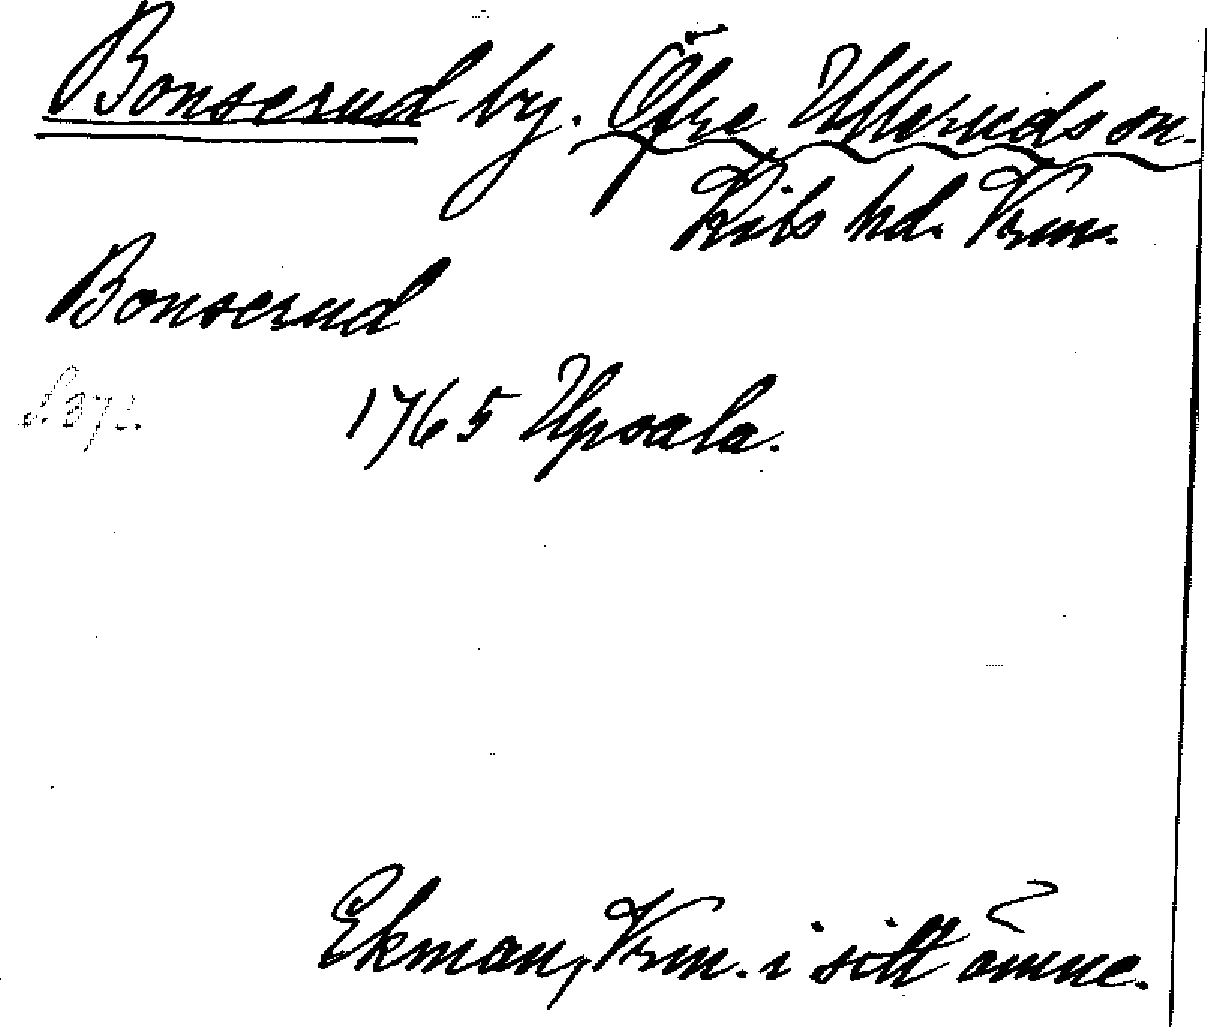 Bonserud by. Öfre Ulleruds sn.
Kils hd. Vrm.
Bonserud
1765 Upsala.
Ekman, Vrm. i sitt ämne.